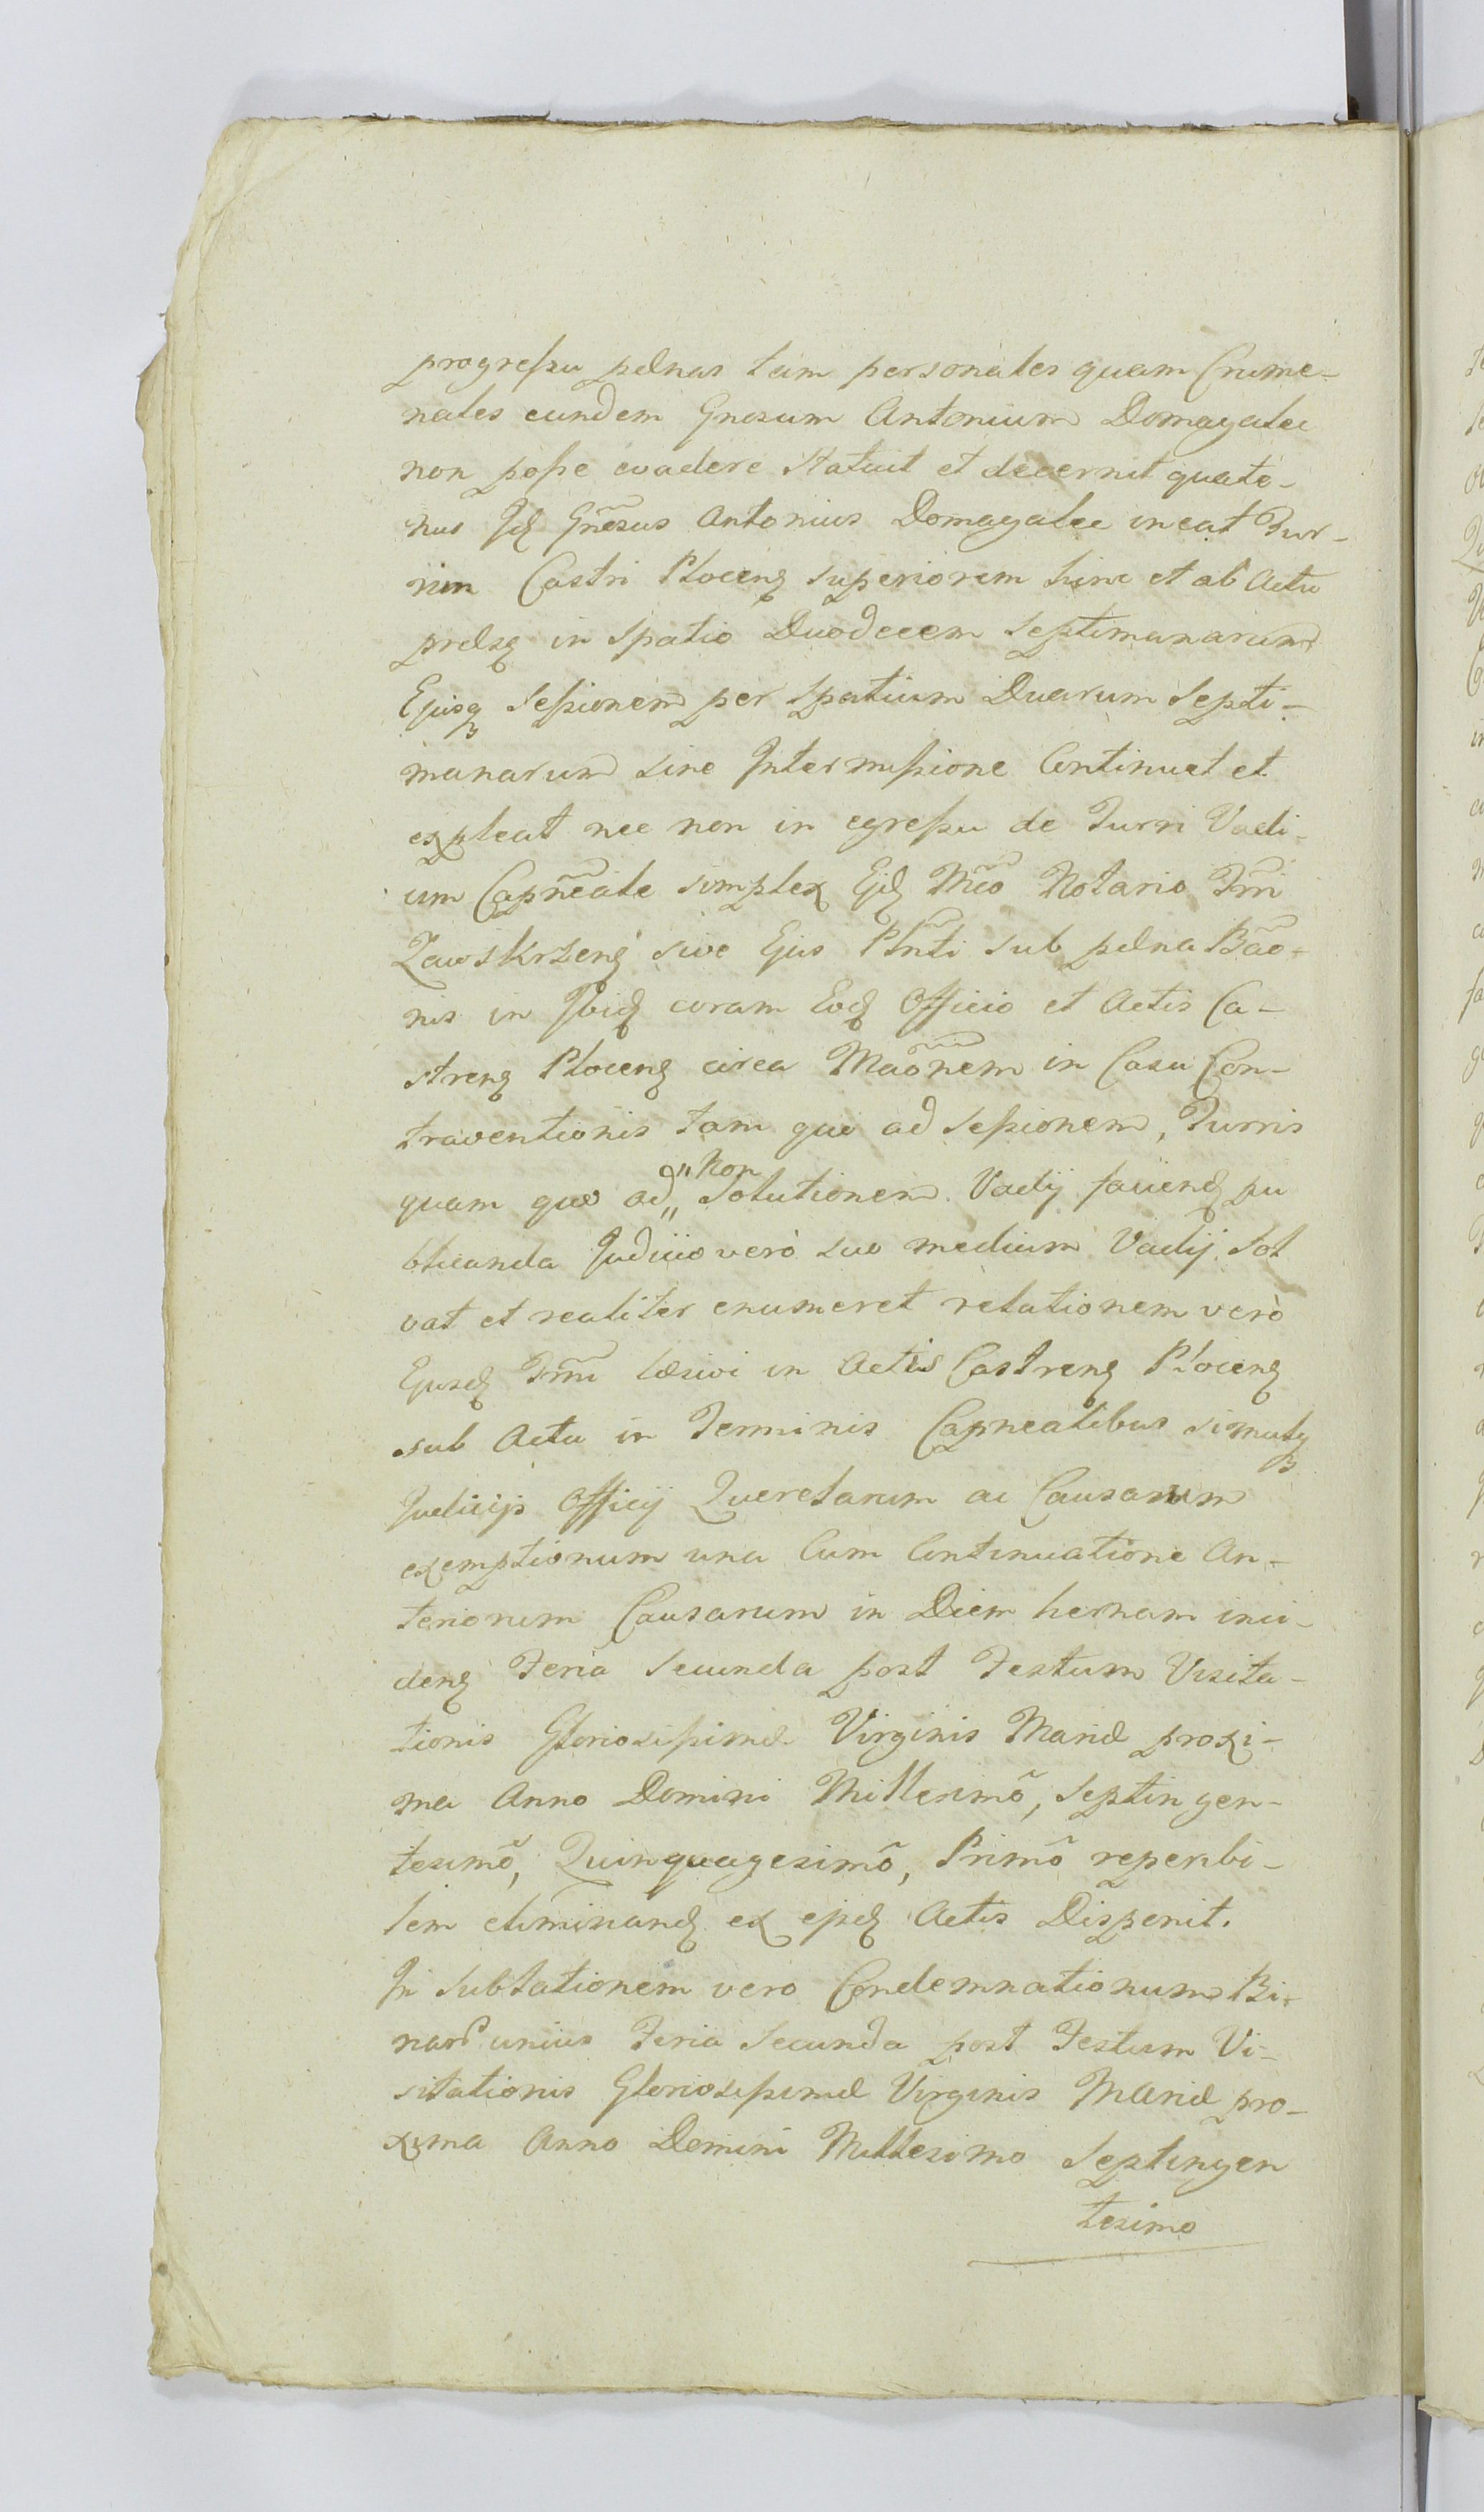 progressu pænas tam personales quam Crume-
nales eundem Gnosum Antonium Domagalec
non posse evadere statuit et decernit quate-
nus Idꝫ Gnõsus Antonius Domagalec ineat Tur-
rim Castri Plocenꝫ superiorem hinc et ab actu
prælsꝫ in spatio Duodecem Septimanarum
Ejusqꝫ sessionem per spatium Duarum Septi-
manarum sine Intermissione Continuet et
expleat nec non in egressu de Turri Vadi-
um Capñeale simplex Ejdꝫ Mco Notario Trri
Zawskrzenꝫ sive Ejus Plnti sub pæna Bãõ-
nis in Ibidꝫ coram Eodꝫ Officio et Actis Ca-
strenꝫ Plocenꝫ circa Maõnem in Casu Con-
traventionis tam quo ad sessionem, Turris
quam quo ad " Non Solutionem Vadij faciendꝫ pu
blicanda Judicio verò suo medium Vadij Sol
vat et realiter enumeret relationem verò
Ejusdꝫ Trmi læsivi in Actis Castrenꝫ Plocenꝫ
sub Actu in Terminis Capnealibus simulqꝫ
Judicijs Officij Querelarum ac Causarum
exemptionum una Cum Continuatione An-
teriorum Causarum in Diem hernam inci-
denꝫ Feria Secunda post Festum Visita-
tionis Gloriosissimæ Virginis Mariæ proxi-
ma Anno Domini Millesimõ, Septingen-
tesimõ, Quinquagesimõ, Primõ reperibi-
lem eliminandꝫ ex ejsdꝫ Actis Disponit.
In Sublationem vero Condemnationum Bi-
nar unius Feria Secunda post Festum Vi-
sitationis Gloriosissimæ Virginis Mariæ pro-
xima Anno Domini Millesimo Septingen
tesimo